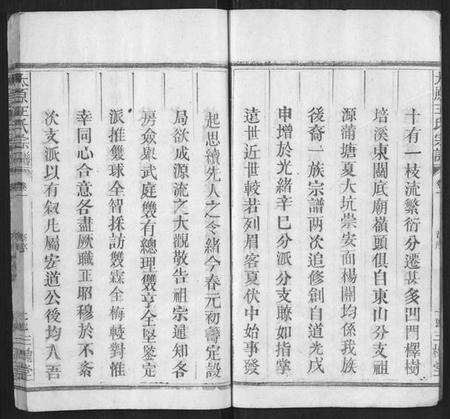 十有一枝流繁衍分遷甚多門樺樹
培溪東關底廟嶺頭俱自東山分支祖
源蒲塘夏大坑崇安面楊關均係我族
後裔一族宗譜两次追修創自道光戊
申增於光緒辛巳分派分支瞭如指掌
遠世近世較若列眉客夏伏中始事發
起思續先人之令緒今春元初籌定設
局欲成源流之大觀敬告祖宗通知各
房僉舉武庭雙有總理雙亨全堅鑒定
派推雙球全智採訪雙霖全梅較對惟
幸同心合意各盡厥職正昭穆於不紊
次支派以有叙凡屬宏道公後均入吾
太原王氏宗譜
三槐堂